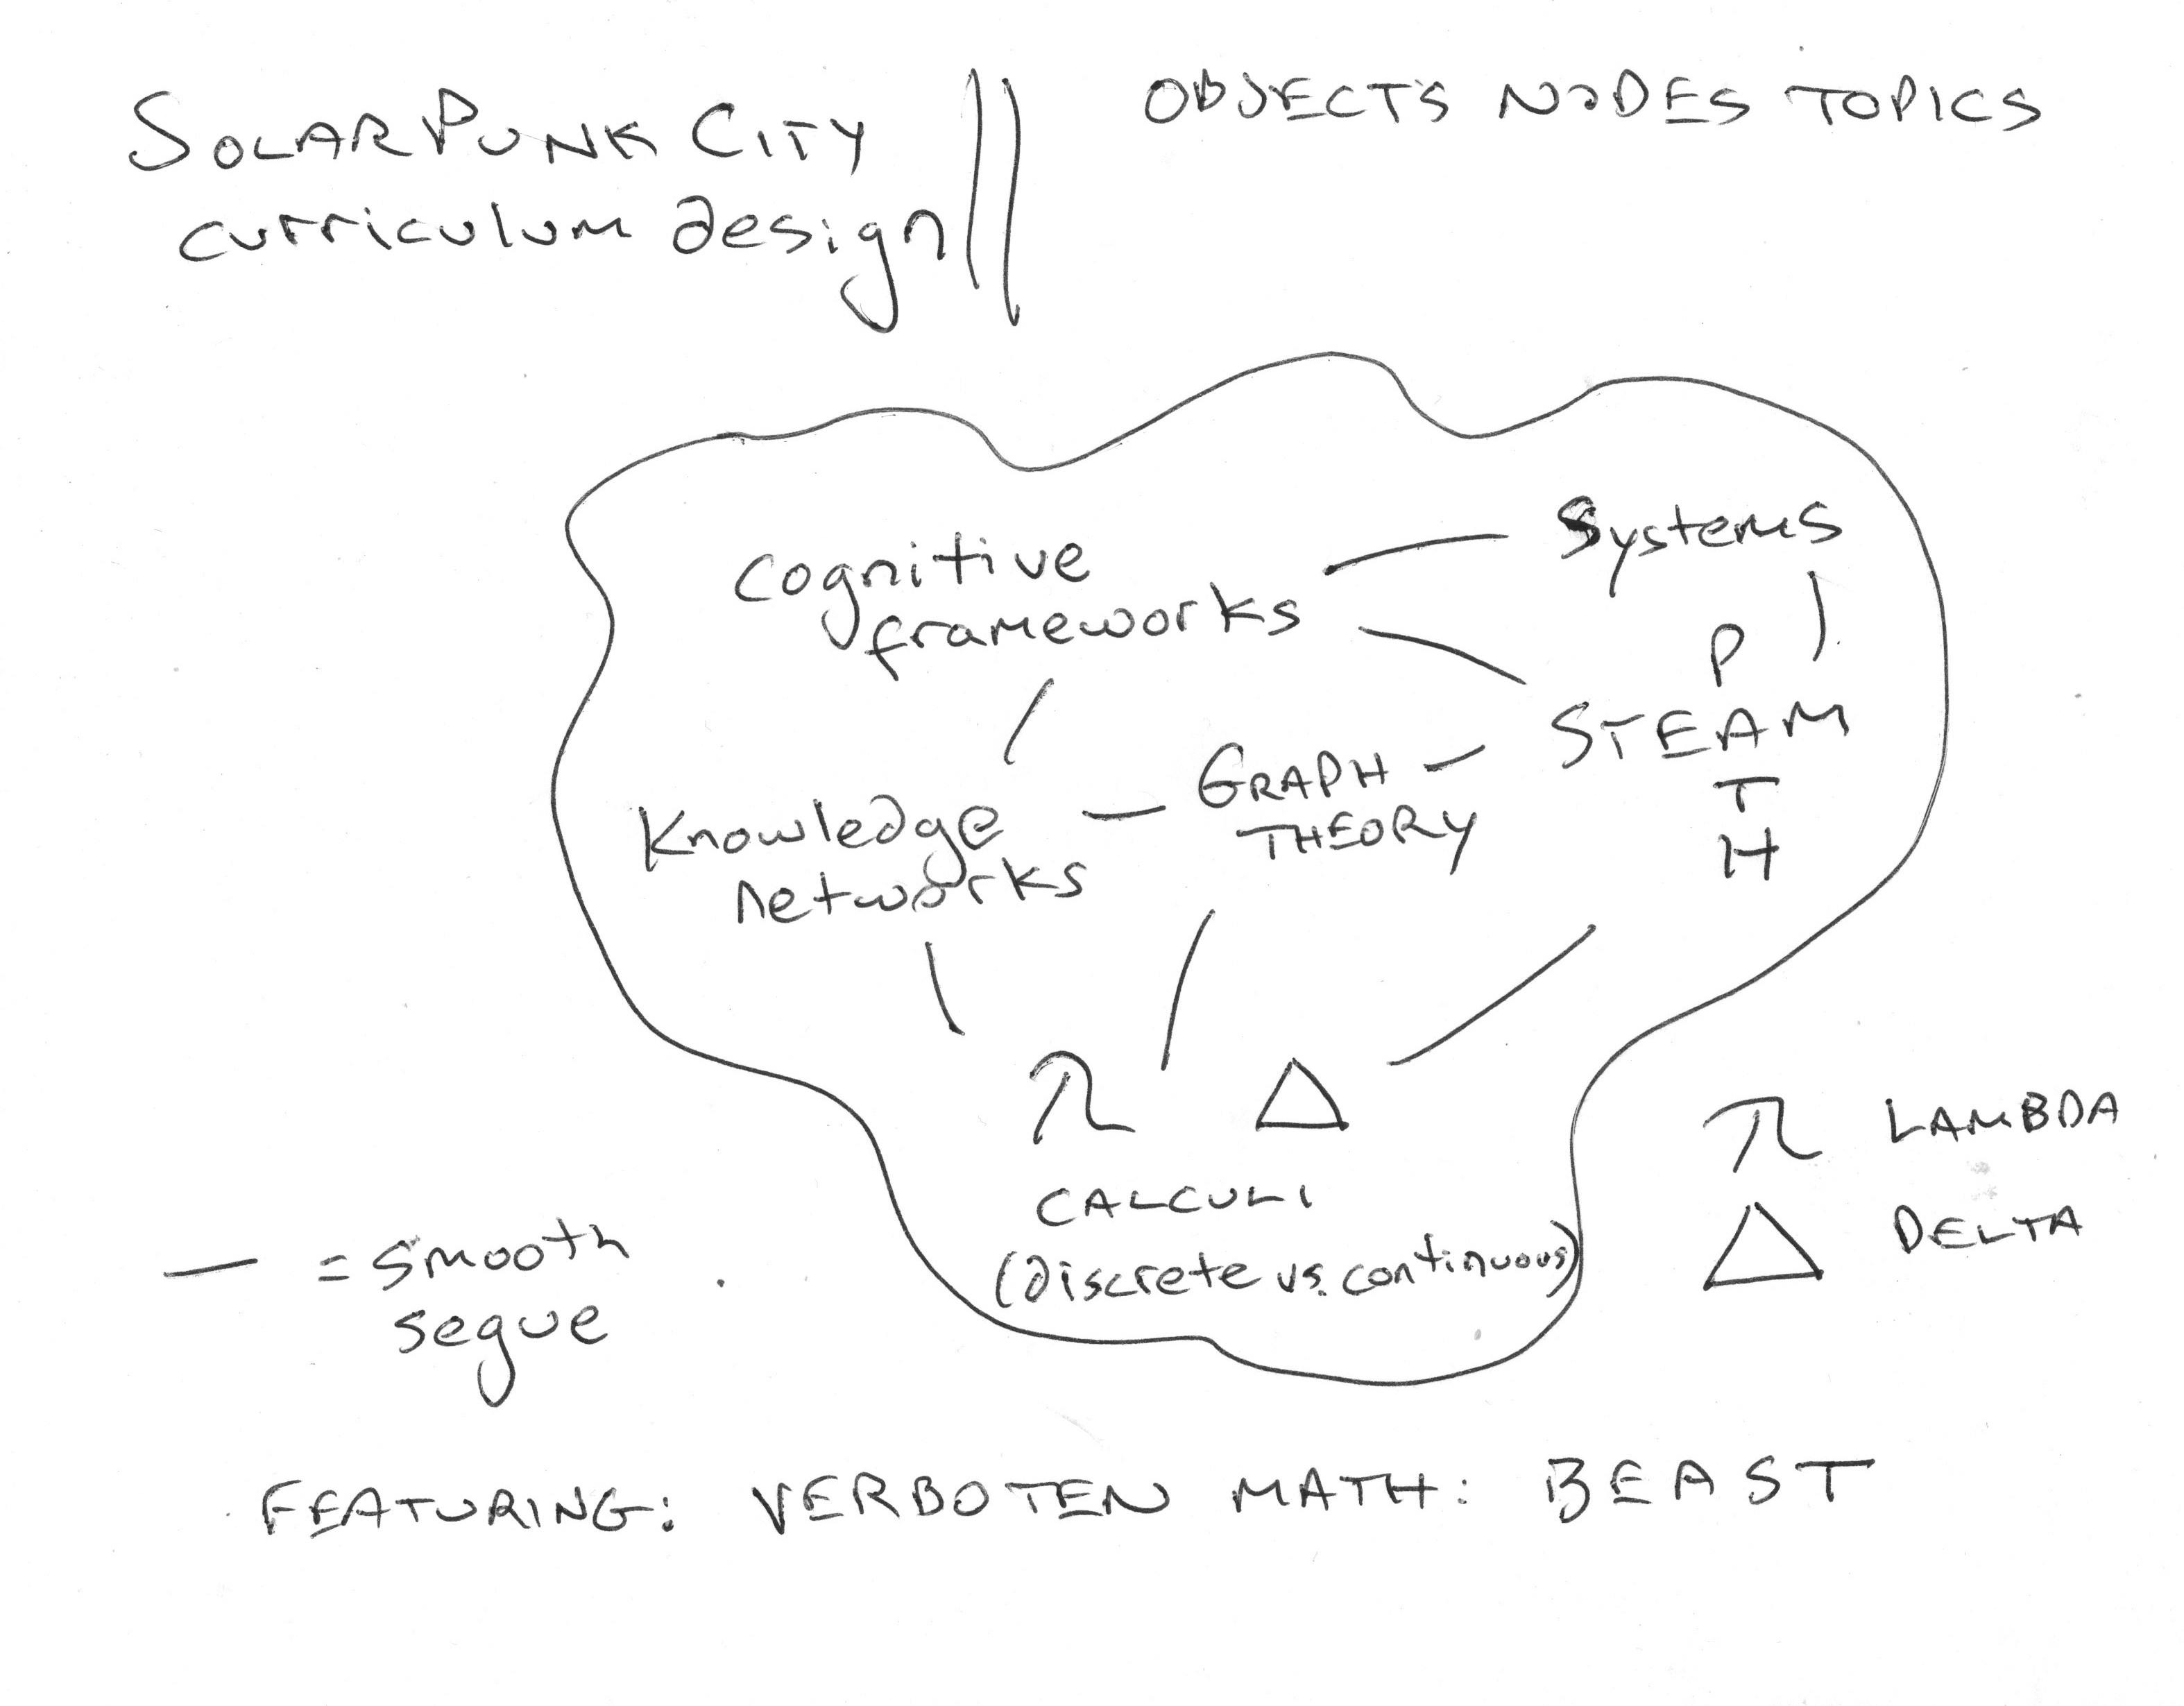 SOLARPUNK CITY
curriculum design
OBJECTS NODES TOPICS
cognitive
frameworks
Systems
P
STEAM
T
H
Knowledge
networks
GRAPH
THEORY
λ Δ
CALCULI
(Discrete vs. continuous)
λ LAMBDA
Δ DELTA
— = smooth
segue
FEATURING: VERBOTEN MATH: BEAST